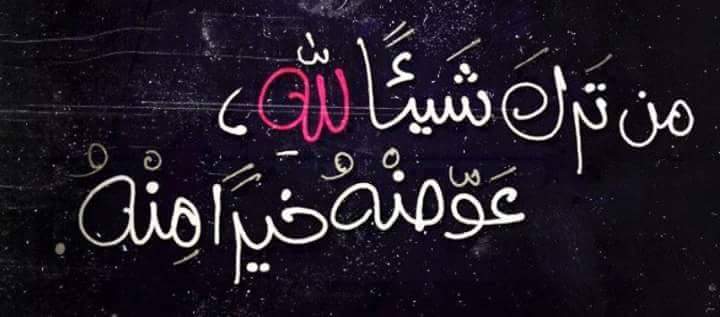 من تَركَ شَيئًا للهِ ،
عَوّضْهُ خَيرًا مِنْهُ .